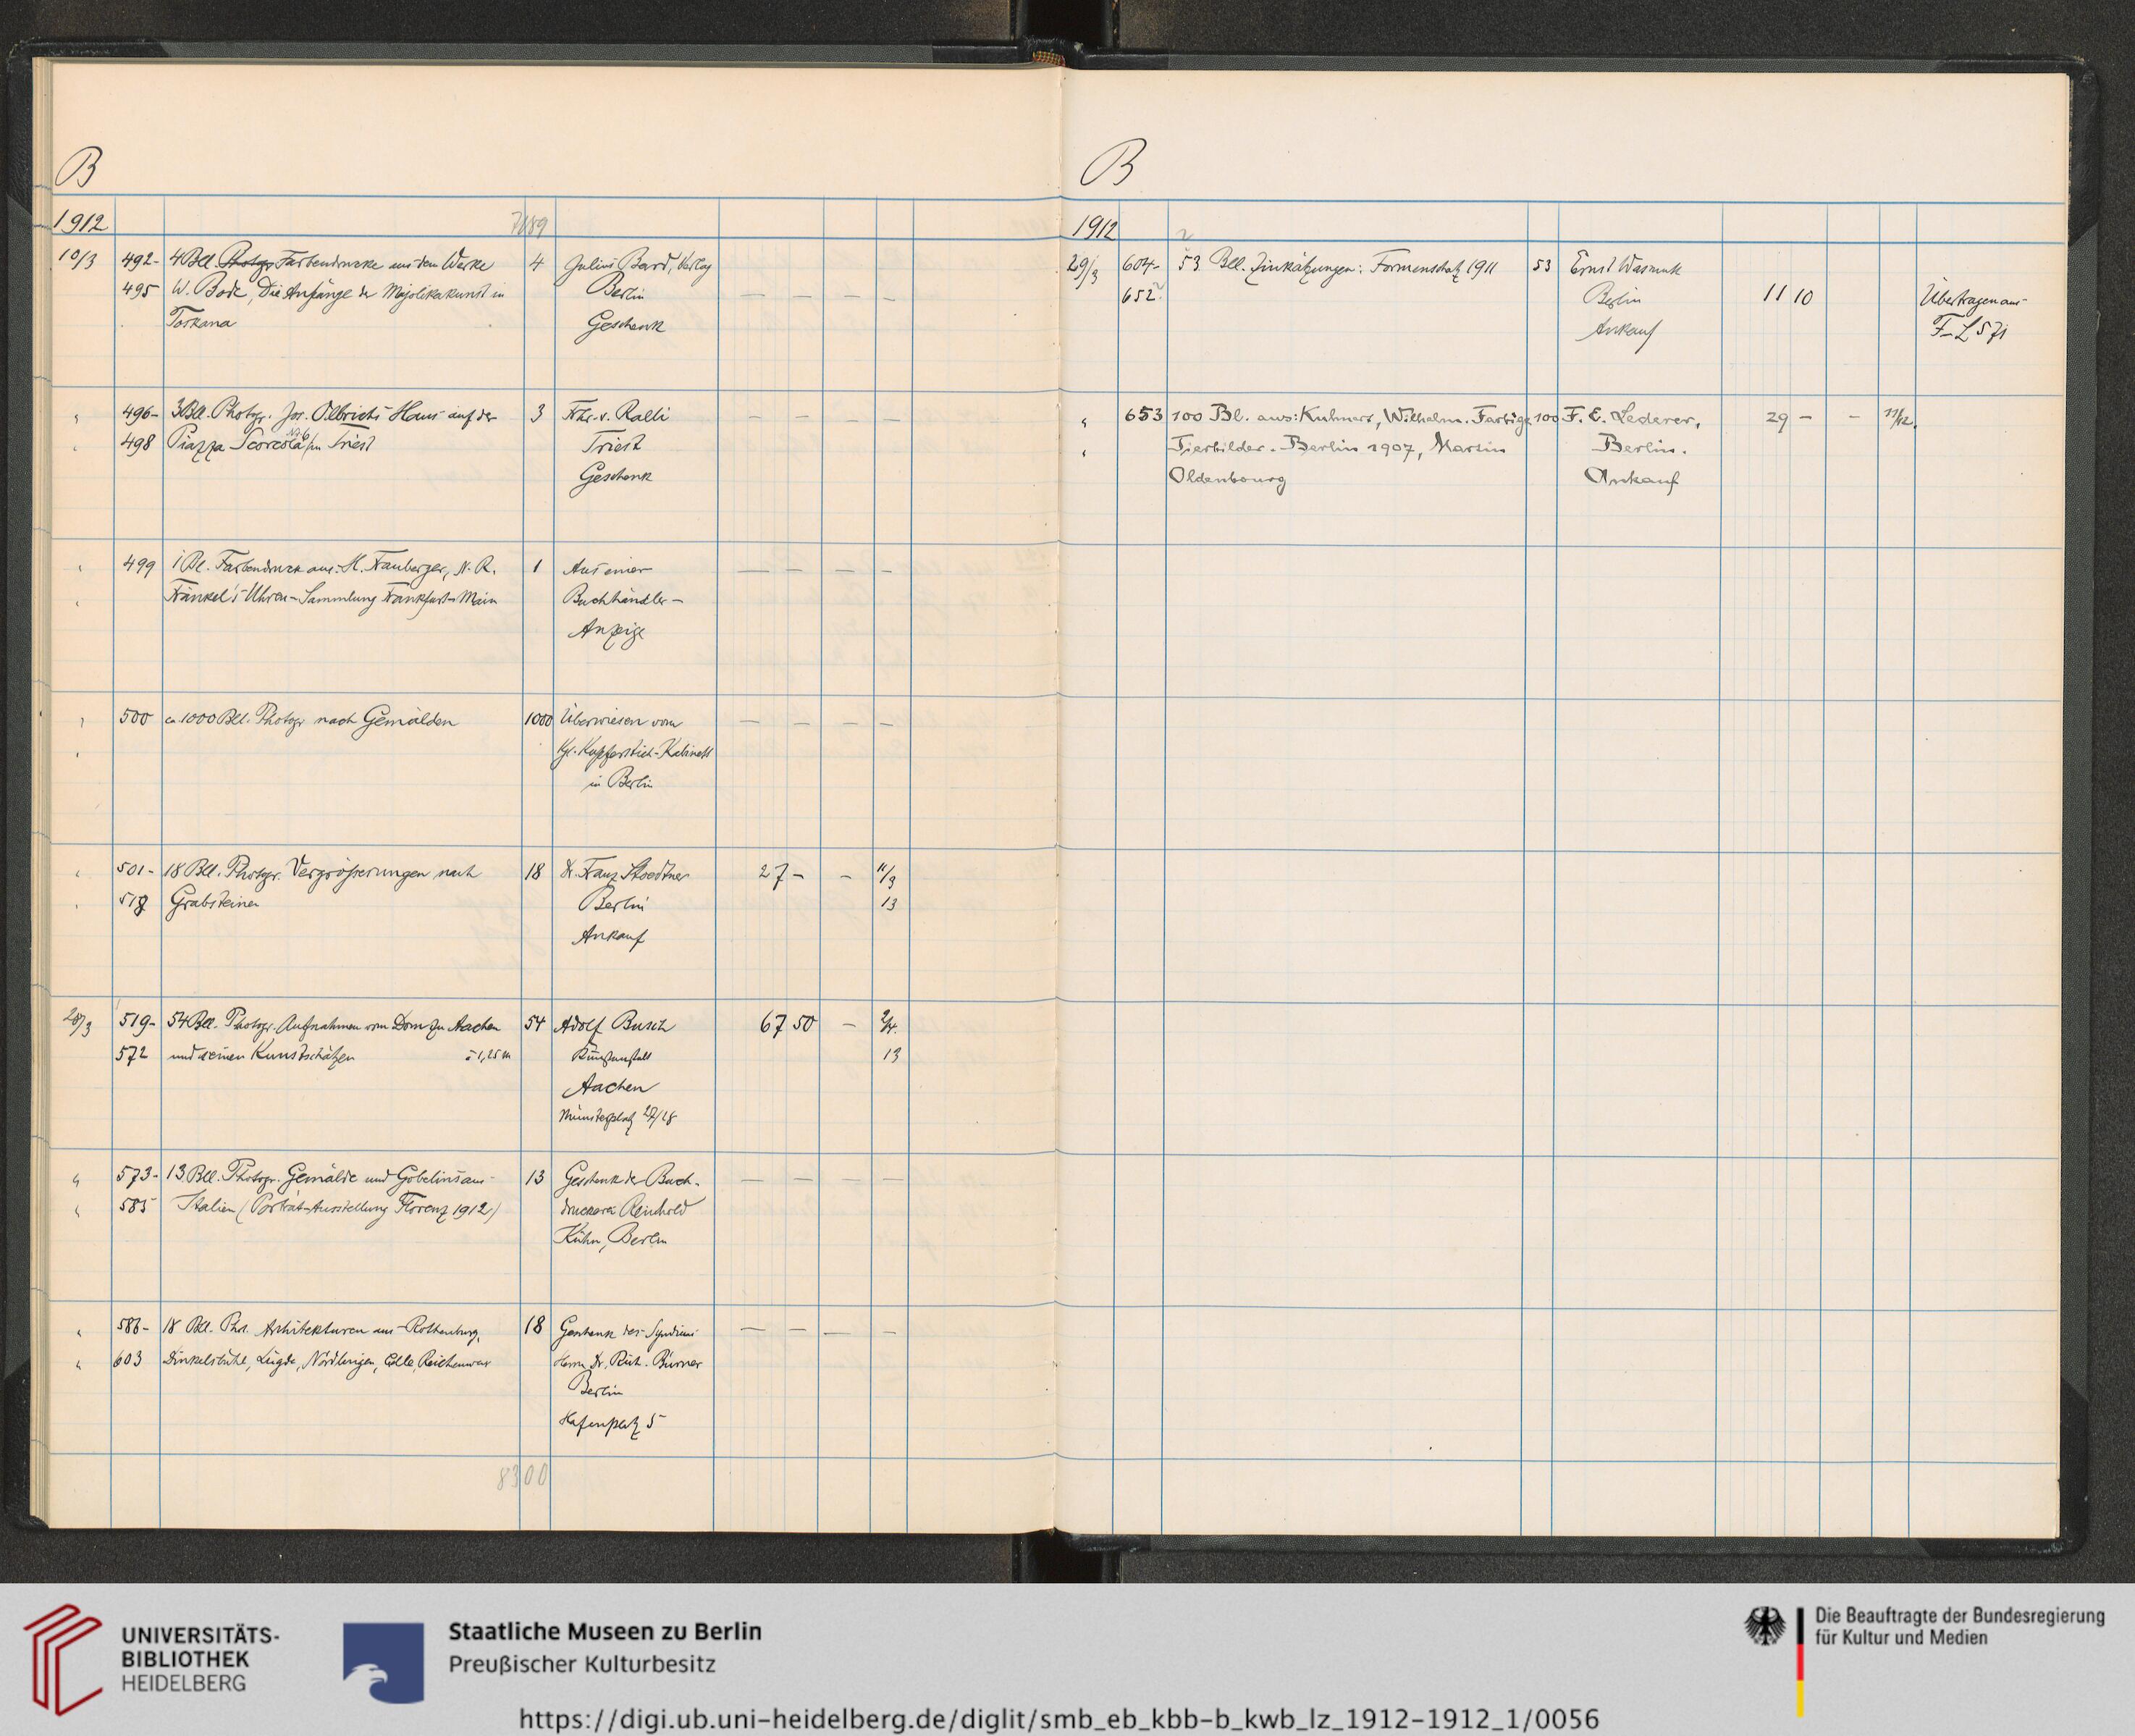 B
1912
7189
10/3 492- 4 Bll. Photogr. Farbendrucke aus dem Werke 4 Julius Bard, Verlag
495 W. Bode, Die Anfänge der Majolikakunst in Berlin — — — —
Toskana Geschenk
" 496- 3 Bll. Photogr. Jos. Olbrichs Haus auf der 3 Frhr. v. Ralli — — — —
" 498 Piazza Scorcola No 6 in Triest Triest
Geschenk
" 499 1 Bl. Farbendruck aus: H. Frauberger, N. R. 1 Aus einer — — — —
" Fränkel's Uhren-Sammlung Frankfurt-Main Buchhändler-
Anzeige
" 500 ca 1000 Bll. Photogr. nach Gemälden 1000 Überwiesen vom — — — —
" Kgl. Kupferstich-Kabinett
in Berlin
" 501- 18 Bll. Photogr. Vergrößerungen nach 18 Dr. Franz Stoedtner 27 - - 11/3
" 518 Grabsteinen Berlin 13
Ankauf
28/3 519- 54 Bll. Photogr. Aufnahmen vom Dom zu Aachen 54 Adolf Busch 67 50 - 2/4.
572 und seinen Kunstschätzen à 1,25 M Kunstanstalt 13
Aachen
Münsterplatz 27/28
" 573- 13 Bll. Photogr. Gemälde und Gobelins aus 13 Geschenk der Buch- — — — —
" 585 Italien (Porträt-Ausstellung Florenz 1912) druckerei Reinhold
Kühn, Berlin
" 586- 18 Bll. Phot. Architekturen aus Rothenburg, 18 Geschenk des Syndicus — — — —
" 603 Dinkelsbühl, Lügde, Nördlingen, Celle, Reichenweier Herrn Dr. Rich. Bürner
Berlin
Hafenplatz 5
8300
B
1912
29/3 604- 53 Bll. Zinkätzungen: Formenschatz 1911 53 Ernst Wasmuth
652 Berlin 11 10 Übertragen aus
Ankauf F-L 571
" 653 100 Bl. aus: Kuhnert, Wilhelm. Farbige 100 F. E. Lederer, 29 - - 11/12.
" Tierbilder. Berlin 1907, Martin Berlin.
Oldenbourg Ankauf
UNIVERSITÄTS-
BIBLIOTHEK
HEIDELBERG
Staatliche Museen zu Berlin
Preußischer Kulturbesitz
Die Beauftragte der Bundesregierung
für Kultur und Medien
https://digi.ub.uni-heidelberg.de/diglit/smb_eb_kbb-b_kwb_lz_1912-1912_1/0056